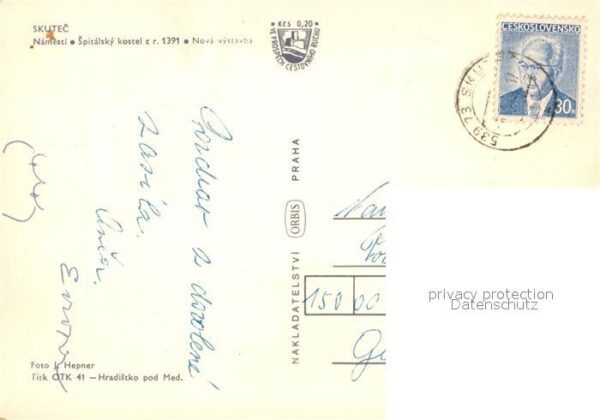 SKUTEČ
Náměstí • Špitálský kostel z r. 1391 • Nová výstavba
Kčs 0,20
VE PROSPĚCH CESTOVNÍHO RUCHU
ČESKOSLOVENSKO
30h
539 73 SKUTEČ
Pozdrav z dovolené
zasílá
NAKLADATELSTVÍ ORBIS PRAHA
150 00
privacy protection
Datenschutz
Foto J. Hepner
Tisk OTK 41 — Hradištko pod Med.